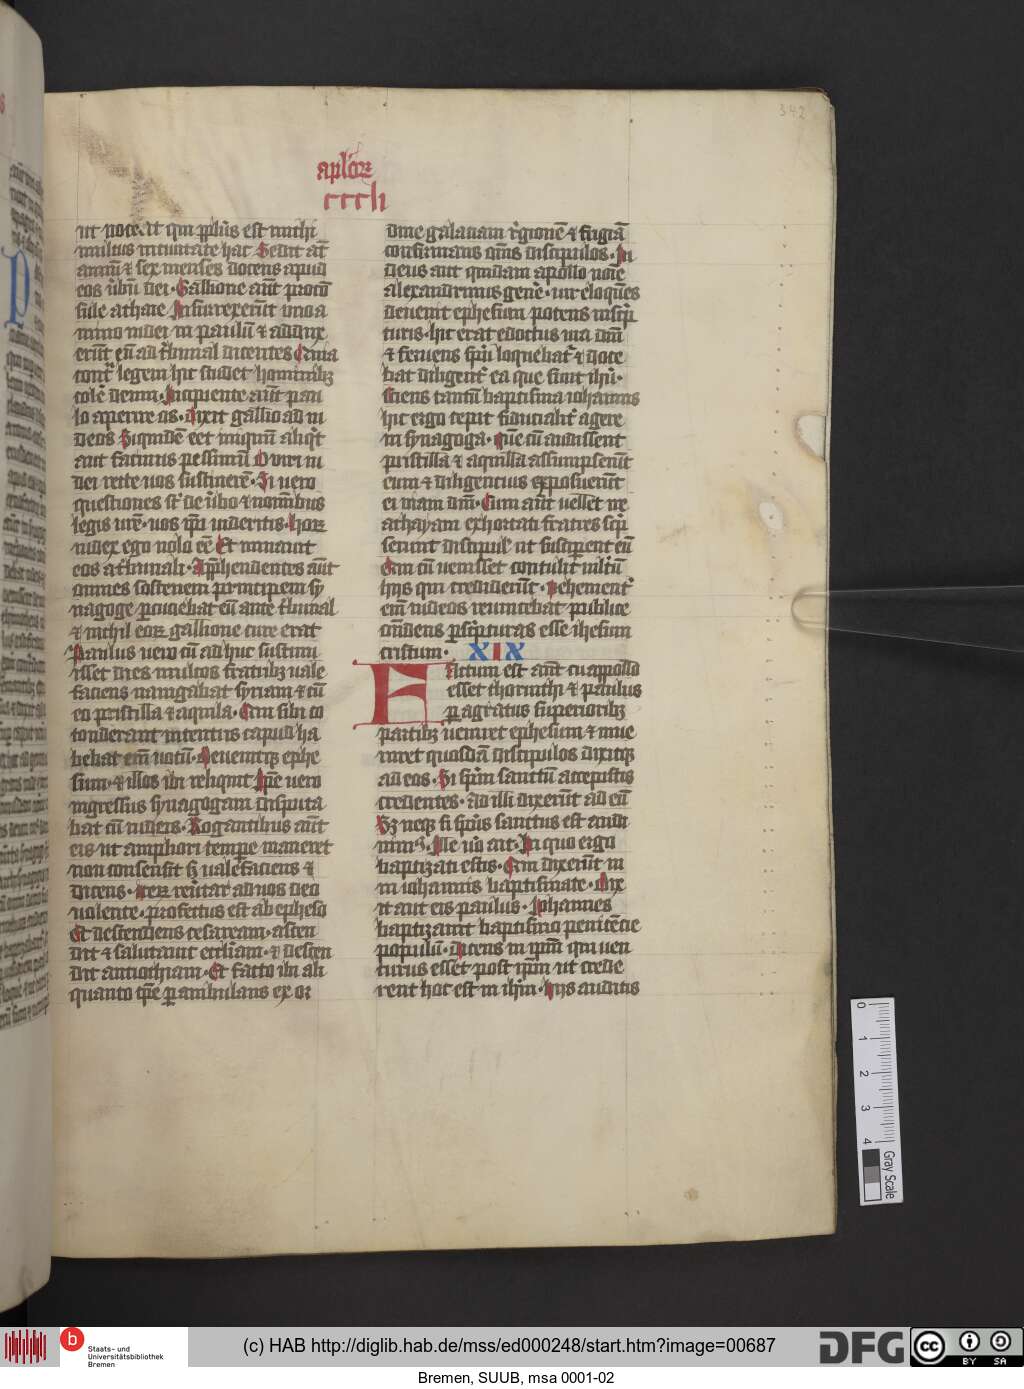 342
apl'oꝝ
ccclı
ut noceat qm̄ ppl̄us est michi
multus in ciuitate hac Sedit aūt
annū ⁊ sex menses docens apud
eos ūbū dei · Gallione aūt proco̅
sule achaie Insurrexerūt uno a
nimo iudei in paulū ⁊ addux
erūt eū ad t̓bunal dicentes Quia
cont̓ legem hic suadet hominibꝫ
cole̓ deum · Incipiente aūt pau
lo aperire os · dixit gallio ad iu
deos Siquidē eēt iniquū aliqͥt
aut facinus pessimū O uiri iu
dei recte uos sustinerē · Si uero
questiones st̄ de ūbo ⁊ nominibus
legis urē · uos ip̄i uideritis · hoꝝ
iudex ego nolo eē Et minauit
eos a t̓bunali · Apphendentes aūt
omnes sostenem principem sy
nagoge ꝑcuciebāt eū ante t̓bunal
⁊ nichil eoꝝ gallione cure erat
Paulus uero cū adhuc sustinu
isset dies multos fratribꝫ uale
faciens nauigabat syriam ⁊ cū
eo priscilla ⁊ aquila · Qui sibi to
tonderant in cencris caput ha
bebat em̄ uotū · Deuenitqꝫ ephe
sum · ⁊ illos ibi reliquit Ip̄e uero
ingressus synagogam disputa
bat cū iudeis · Rogantibus aūt
eis ut ampliori tempe maneret
non consensit sꝫ ualefaciens ⁊
dicens · iteꝝ reūtar ad uos deo
uolente · profectus est ab epheso
Et descendens cesaream · ascen
dit ⁊ salutauit eccl̄iam · ⁊ descen
dit antiochiam · Et facto ibi ali
quanto tp̄e ꝑambulans ex or
dine galatiam r̓gionē ⁊ frigiā
confirmans om̄s discipulos · Iu
deus aūt quidam apollo noīe
alexandrinus genē · uir eloquēs
deuenit ephesum potens in scͥp
turis · hic erat edoctus uia dn̄i
⁊ feruens spū loquebat̓ ⁊ doce
bat diligent̓ ea que sunt ih̄u ·
sciens tantū baptisma iohannis
hic ergo cepit fiducialit̓ agere
in synagoga · que̅ cū audissent
priscilla ⁊ aquilla assumpserūt
eum ⁊ diligencius exposuerūt
ei uiam dn̄i · Cum aūt uellet ire
achayam exhortati fratres scͥp
serunt discipul' ut susciperent eū
Qui cū uenisset contulit m̄ltū
hijs qui crediderūt · vehement̓
em̄ iudeos reuincebat publice
on̄dens ꝑ scͥpturas esse ihesum
cristum · XIX
Factum est aūt cū appollo
esset chorinthi ⁊ paulus
ꝑagratus superioribꝫ
partibꝫ ueniret ephesum ⁊ inue
niret quosdā discipulos dixitqꝫ
ad eos · Si spm̄ sanctū accepistis
credentes · ad illi dixerūt ad eū
Sꝫ neqꝫ si sp̄us sanctus est audi
uimꝰ · Ille ūo ait · In quo ergo
baptizati estis · Qui dixerūt in
in iohannis baptismate · Dix
it aūt eis paulus · Iohannes
baptizauit baptismo penitēcie
populū · dicens in ip̄m qui uen
turus esset post ip̄m ut crede
rent hoc est in ih̄m · hijs auditis
0 1 2 3 4
Gray Scale
Staats- und
Universitätsbibliothek
Bremen
(c) HAB http://diglib.hab.de/mss/ed000248/start.htm?image=00687
DFG
cc BY SA
Bremen, SUUB, msa 0001-02